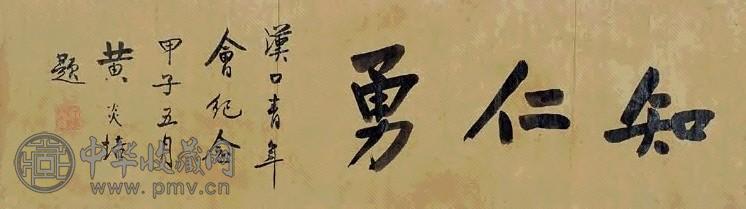 知仁勇
漢口青年
會紀念
甲子五月
黄炎培
題
中华收藏网
www.pmv.cn